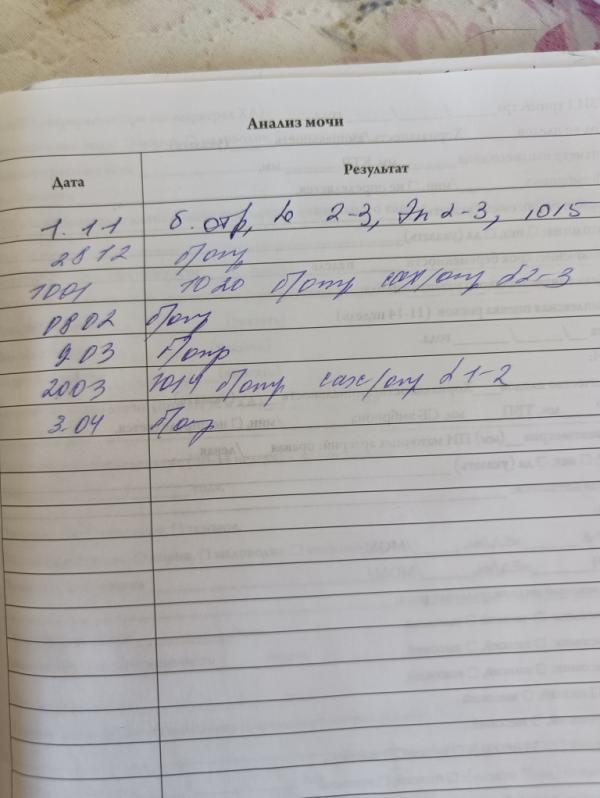 Анализ мочи
Дата Результат
1.11 б. отр, L 2-3, Эп 2-3, 1015
2812 б/отр
1001 1020 б/отр сах/отр L2-3
0802 б/отр
9.03 б/отр
2003 1014 б/отр сах/отр L1-2
3.04 б/отр